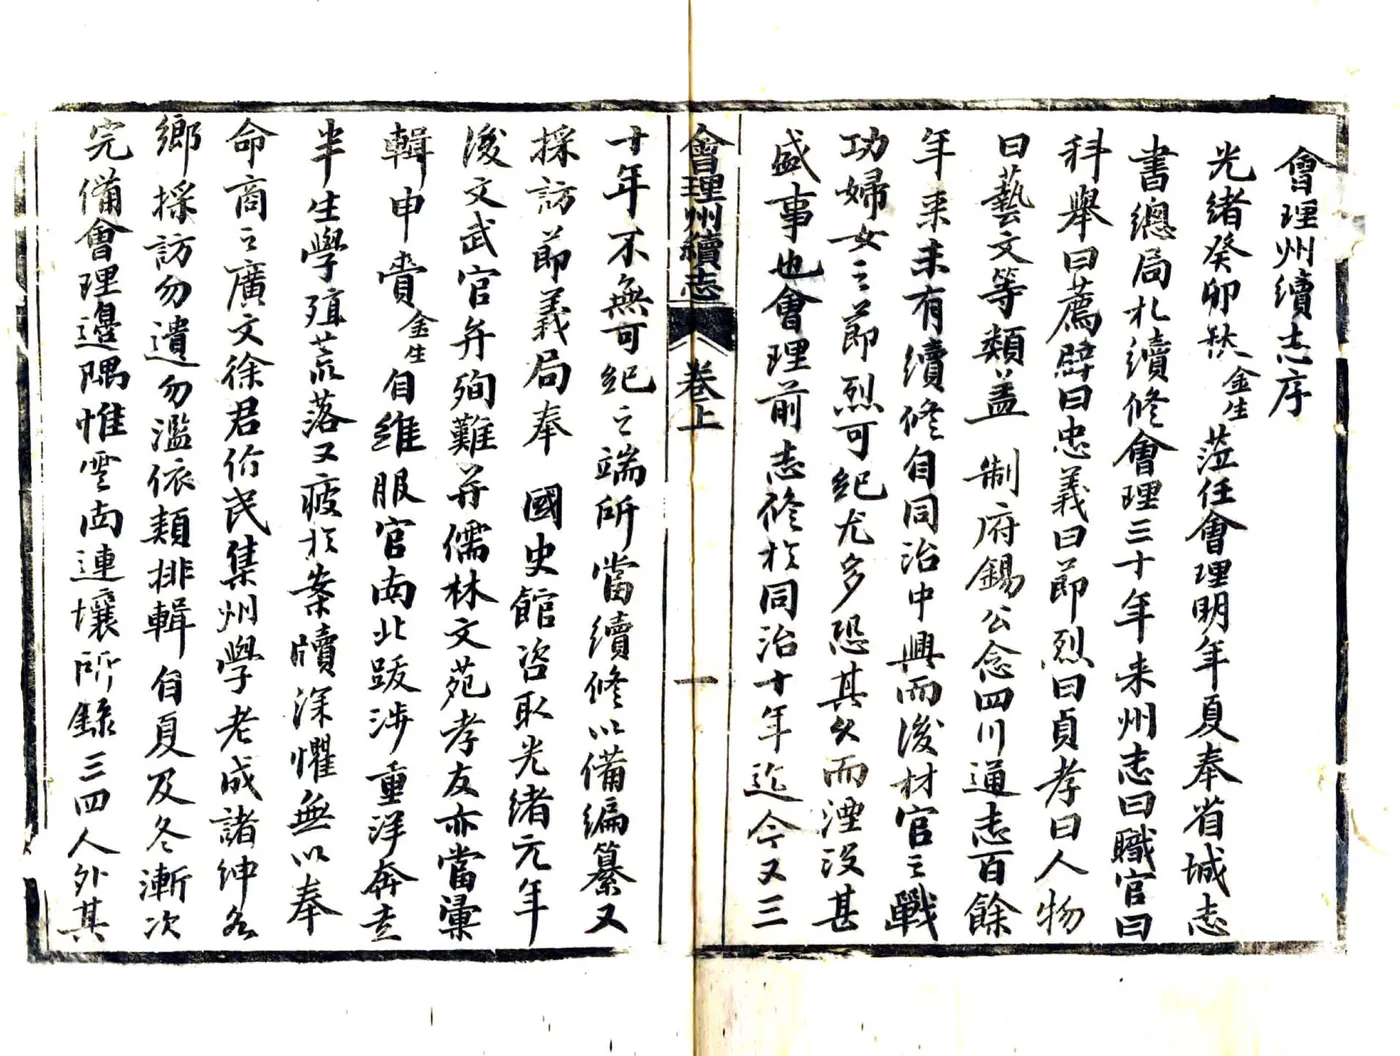 會理州續志序
光緒癸卯秋金生蒞任會理明年夏奉省城志
書總局札續修會理三十年来州志曰職官曰
科舉曰薦辟曰忠義曰節烈曰貞孝曰人物
曰藝文等類盖 制府錫公念四川通志百餘
年来未有續修自同治中興而後材官之戰
功婦女之節烈可紀尤多恐其久而湮没甚
盛事也會理前志修於同治十年迄今又三
會理州續志 卷上 一
十年不無可紀之端所當續修以備編纂又
採訪節義局奉 國史館咨取光緒元年
後文武官弁殉難并儒林文苑孝友亦當彙
輯申賫金生自維服官南北跋涉重洋奔走
半生學殖荒落又疲於案牘深懼無以奉
命商之廣文徐君伯民集州學老成諸紳各
鄉採訪勿遺勿濫依類排輯自夏及冬漸次
完備會理邊隅惟雲南連壤所錄三四人外其